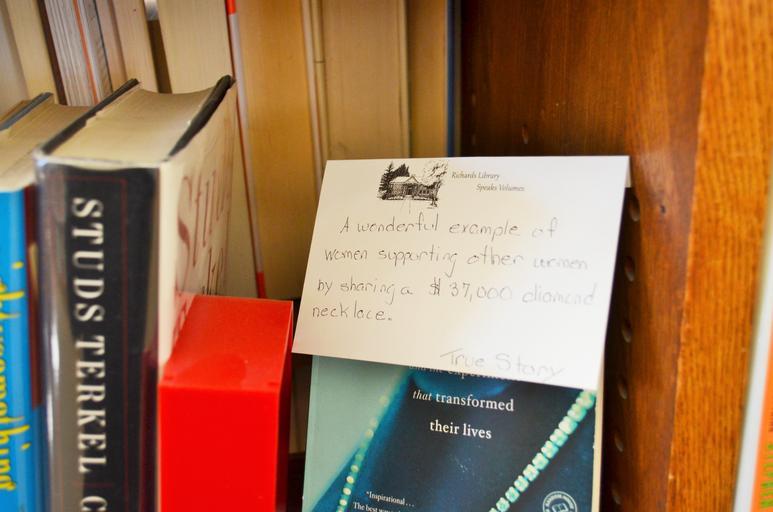 Richards Library
Speaks Volumes
A wonderful example of
women supporting other women
by sharing a $37,000 diamond
necklace.
True Story
that transformed
their lives
"Inspirational...
STUDS TERKEL